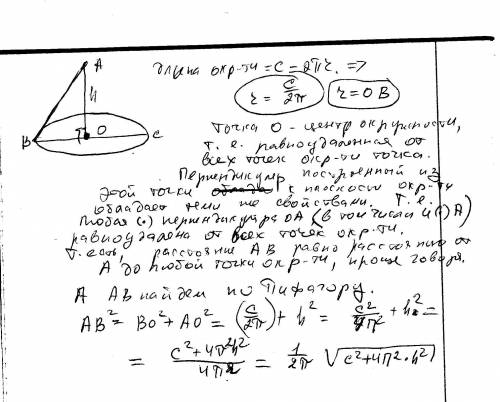 A
длина окр-ти = C = 2πr. =>
h
r = C/2π r = OB
B O C
точка O - центр окружности,
т. е. равноудаленная от
всех точек окр-ти точка.
Перпендикуляр построенный из
этой точки к плоскости окр-ти
обладает теми же свойствами. Т. е.
любая (.) перпендикуляра OA (в том числе и (.) A)
равноудалена от всех точек окр-ти.
т. есть, расстояние AB равно расстоянию от
A до любой точки окр-ти, проще говоря.
А AB найдем по Пифагору.
AB² = BO² + AO² = (C/2π) + h² = C²/4π² + h² =
= C² + 4π²h²/4π² = 1/2π √(C² + 4π² · h²)